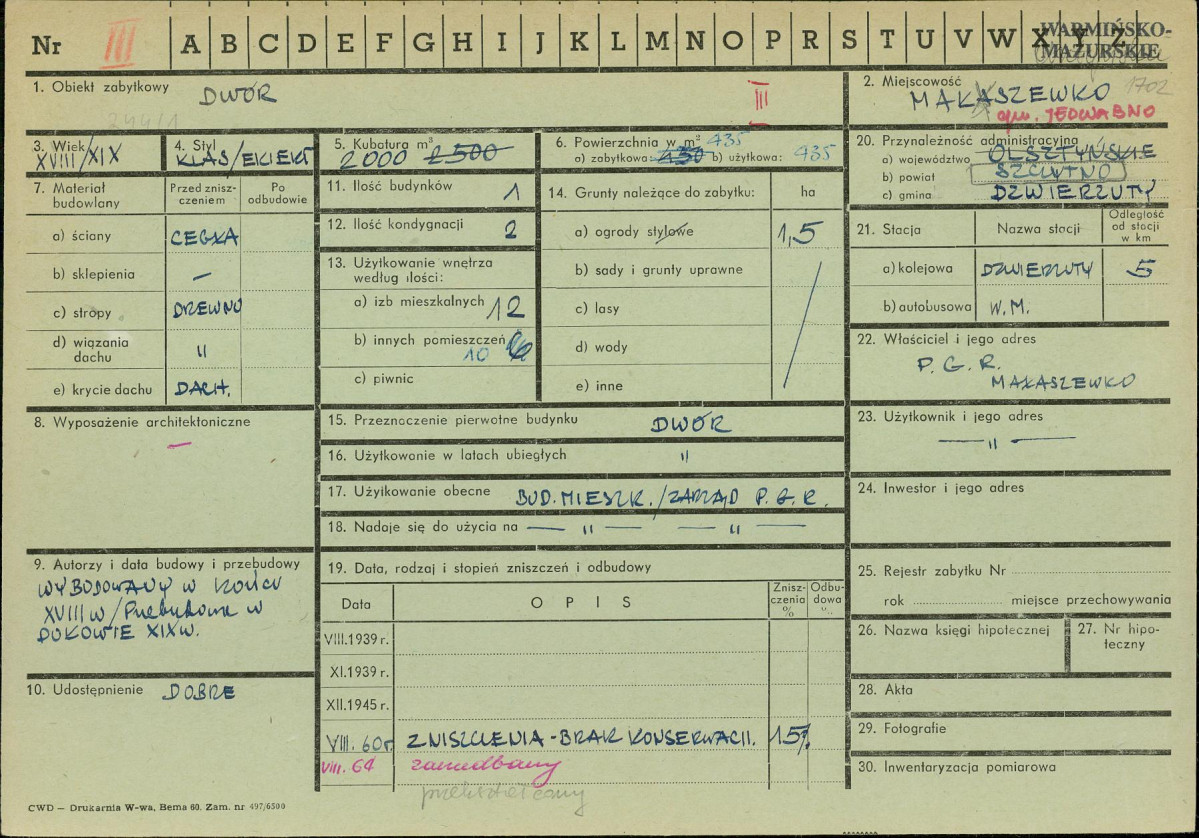 Nr III A B C D E F G H I J K L M N O P R S T U V W X Y Z
WARMIŃSKO-
MAZURSKIE
1. Obiekt zabytkowy DWÓR III
244/1
2. Miejscowość 1702
MAŁASZEWKO
gm. JEDWABNO
3. Wiek XVIII/XIX
4. Styl KLAS/EKLEKT
5. Kubatura m³
2000 2500
6. Powierzchnia w m² 435
a) zabytkowa: 430 b) użytkowa: 435
20. Przynależność administracyjna
a) województwo OLSZTYŃSKIE
b) powiat SZCZYTNO
c) gmina DZWIERZUTY
7. Materiał budowlany
Przed zniszczeniem
Po odbudowie
a) ściany CEGŁA
b) sklepienia —
c) stropy DREWNO
d) wiązania dachu "
e) krycie dachu DACH.
11. Ilość budynków 1
12. Ilość kondygnacji 2
13. Użytkowanie wnętrza
według ilości:
a) izb mieszkalnych 12
b) innych pomieszczeń
10
c) piwnic
14. Grunty należące do zabytku: ha
a) ogrody stylowe 1,5
b) sady i grunty uprawne
c) lasy
d) wody
e) inne
21. Stacja
Nazwa stacji
Odległość
od stacji
w km
a) kolejowa DZWIERZUTY 5
b) autobusowa W.M.
22. Właściciel i jego adres
P. G. R.
MAŁASZEWKO
8. Wyposażenie architektoniczne
—
15. Przeznaczenie pierwotne budynku DWÓR
16. Użytkowanie w latach ubiegłych "
17. Użytkowanie obecne BUD. MIESZK./ZARZĄD P. G. R.
18. Nadaje się do użycia na — " — — " —
23. Użytkownik i jego adres
— " —
24. Inwestor i jego adres
9. Autorzy i data budowy i przebudowy
WYBUDOWANY W KOŃCU
XVIII w/Przebudowa w
POŁOWIE XIX w.
10. Udostępnienie DOBRE
19. Data, rodzaj i stopień zniszczeń i odbudowy
Data
O P I S
Zniszczenia
%
Odbudowa
%
VIII.1939 r.
XI.1939 r.
XII.1945 r.
VIII. 60 r. ZNISZCZENIA - BRAK KONSERWACJI. 15%
VIII. 64 zaniedbany
przekształcony
25. Rejestr zabytku Nr
rok miejsce przechowywania
26. Nazwa księgi hipotecznej
27. Nr hipo-
teczny
28. Akta
29. Fotografie
30. Inwentaryzacja pomiarowa
CWD — Drukarnia W-wa, Bema 60. Zam. nr 497/6500